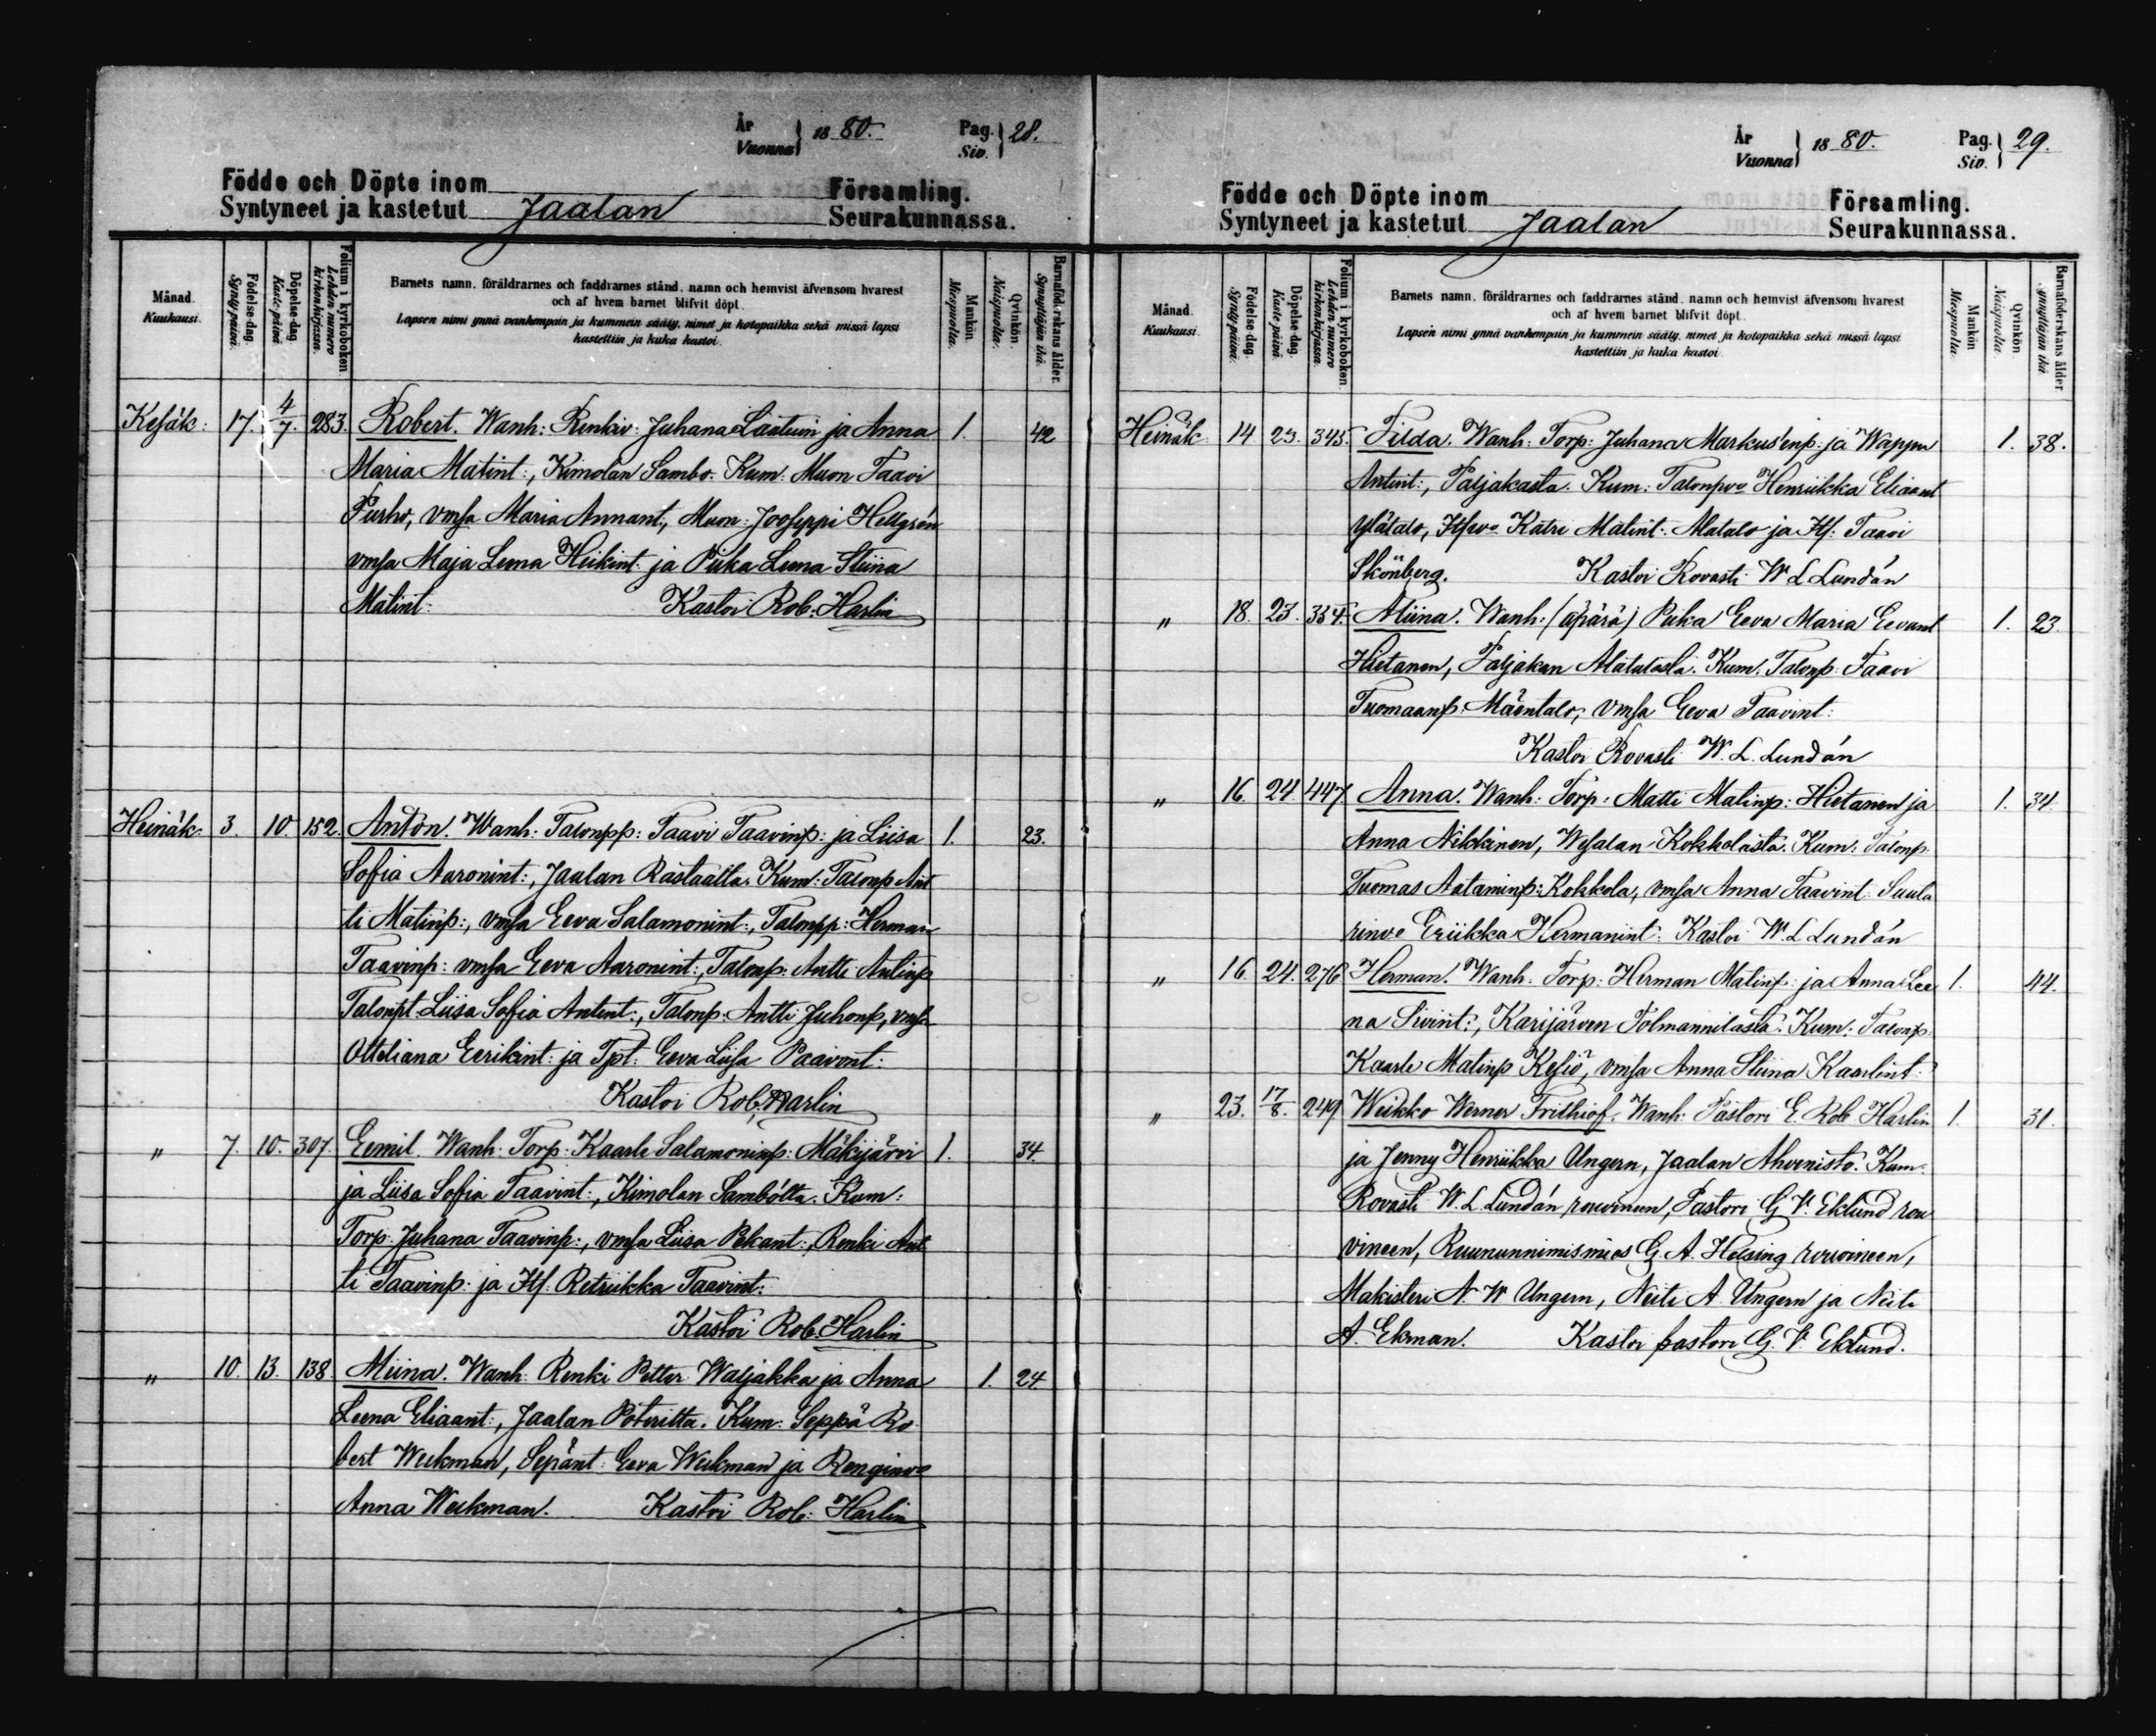 År
Vuonna
18 80.
Pag.
Siv.
28.
Födde och Döpte inom
Syntyneet ja kastetut
Jaalan
Församling.
Seurakunnassa.
Månad.
Kuukausi.
Födelse-dag.
Synty-päivä.
Döpelse-dag.
Kaste-päivä.
Folium i kyrkoboken.
Lehden numero
kirkonkirjassa.
Barnets namn, föräldrarnes och faddrarnes stånd, namn och hemvist äfvensom hvarest
och af hvem barnet blifvit döpt.
Lapsen nimi ynnä vanhempain ja kummein sääty, nimet ja kotopaikka sekä missä lapsi
kastettiin ja kuka kastoi.
Mankön.
Miespuolia.
Qvinkön.
Naispuolia.
Barnaföderskans ålder.
Synnyttäjän ikä.
Kesäk: 17. 4/7. 283. Robert. Wanh: Renkiv: Juhana Laatuin ja Anna 1. 42
Maria Matint:, Kimolan Sambo. Kum: Muon Taavi
Purho, vmsa Maria Annant, Muon: Jooseppi Hellgrén
vmsa Maja Leena Heikint: ja Piika Leena Stiina
Matint: Kastoi Rob: Harlin
Heinäk: 3. 10 152. Anton. Wanh: Talonpp: Taavi Taavinp: ja Liisa 1. 23.
Sofia Aaronint:, Jaalan Rastaalta. Kum: Talonp Ant
ti Matinp:, vmsa Eeva Salamonint:, Talonpp: Herman
Taavinp: vmsa Eeva Aaronint:, Talonp: Antti Antinp
Talonpt Liisa Sofia Antint:, Talonp: Antti Juhonp, vmsa
Otteliana Eerikint: ja Tpt: Eeva Liisa Paavont:
Kastoi Rob: Harlin
" 7. 10. 307. Eemil. Wanh: Torp: Kaarle Salamoninp: Mäkijärvi 1. 34.
ja Liisa Sofia Taavint:, Kimolan Sambólta. Kum:
Torp: Juhana Taavinp:, vmsa Liisa Pekant:, Renki Ant
ti Taavinp: ja Itf: Retriikka Taavint:
Kastoi Rob: Harlin
" 10. 13. 138. Miina. Wanh: Renki Petter Waljakka ja Anna 1. 24.
Leena Eliaant:, Jaalan Potirilta. Kum: Seppä Ro
bert Weckman, Sepänt: Eeva Weckman ja Renginvo
Anna Weckman. Kastoi Rob: Harlin
År
Vuonna
18 80.
Pag.
Siv.
29.
Födde och Döpte inom
Syntyneet ja kastetut
Jaalan
Församling.
Seurakunnassa.
Månad.
Kuukausi.
Födelse-dag.
Synty-päivä.
Döpelse-dag.
Kaste-päivä.
Folium i kyrkoboken.
Lehden numero
kirkonkirjassa.
Barnets namn, föräldrarnes och faddrarnes stånd, namn och hemvist äfvensom hvarest
och af hvem barnet blifvit döpt.
Lapsen nimi ynnä vanhempain ja kummein sääty, nimet ja kotopaikka sekä missä lapsi
kastettiin ja kuka kastoi.
Mankön
Miespuolia.
Qvinkön
Naispuolia.
Barnaföderskans ålder.
Synnyttäjän ikä.
Heinäk. 14 23. 345. Tilda. Wanh: Torp: Juhana Markus'enp: ja Wappu 1. 38.
Antint:, Paljakasta. Kum: Talonpvo Henriikka Eliaant
Ylätalo, Itsvo Katri Matint. Alatalo ja Itf: Taavi
Skönberg. Kastoi Rovasti W L Lundán
" 18. 23. 354. Miina. Wanh: (äpärä) Piika Eeva Maria Eevant 1. 23.
Hietanen, Paljakan Alatalosta. Kum. Talonp: Taavi
Tuomaanp: Mäentalo, vmsa Eeva Taavint:
Kastoi Rovasti W. L. Lundán
" 16. 24. 447 Anna. Wanh: Torp: Matti Matinp: Hietanen ja 1. 34.
Anna Nikkinen, Wesalan Kokkolasta. Kum: Talonp
Tuomas Aataminp: Kokkola, vmsa Anna Taavint: Suuta
rinvo Eriikka Hermanint: Kastoi W. L Lundán
" 16. 24. 276 Herman. Wanh: Torp: Herman Matinp: ja Anna Lee 1. 44.
na Sivint:, Karijärven Tolmannilasta. Kum: Talonp.
Kaarle Matinp Kesiö, vmsa Anna Stiina Kaarlint:
" 23. 17/8. 249 Weikko Werner Frithiof. Wanh: Pastori E. Rob Harlin 1. 31.
ja Jenny Henriikka Ungern, Jaalan Ahvenisto. Kum.
Rovasti W. L. Lundán rouvineen, Pastori G. V. Eklund rou
vineen, Ruununnimismies G. A. Helsing rouvineen,
Makisteri N. W Ungern, Neiti A. Ungern ja Neiti
A. Ekman. Kastoi pastori G. V. Eklund.